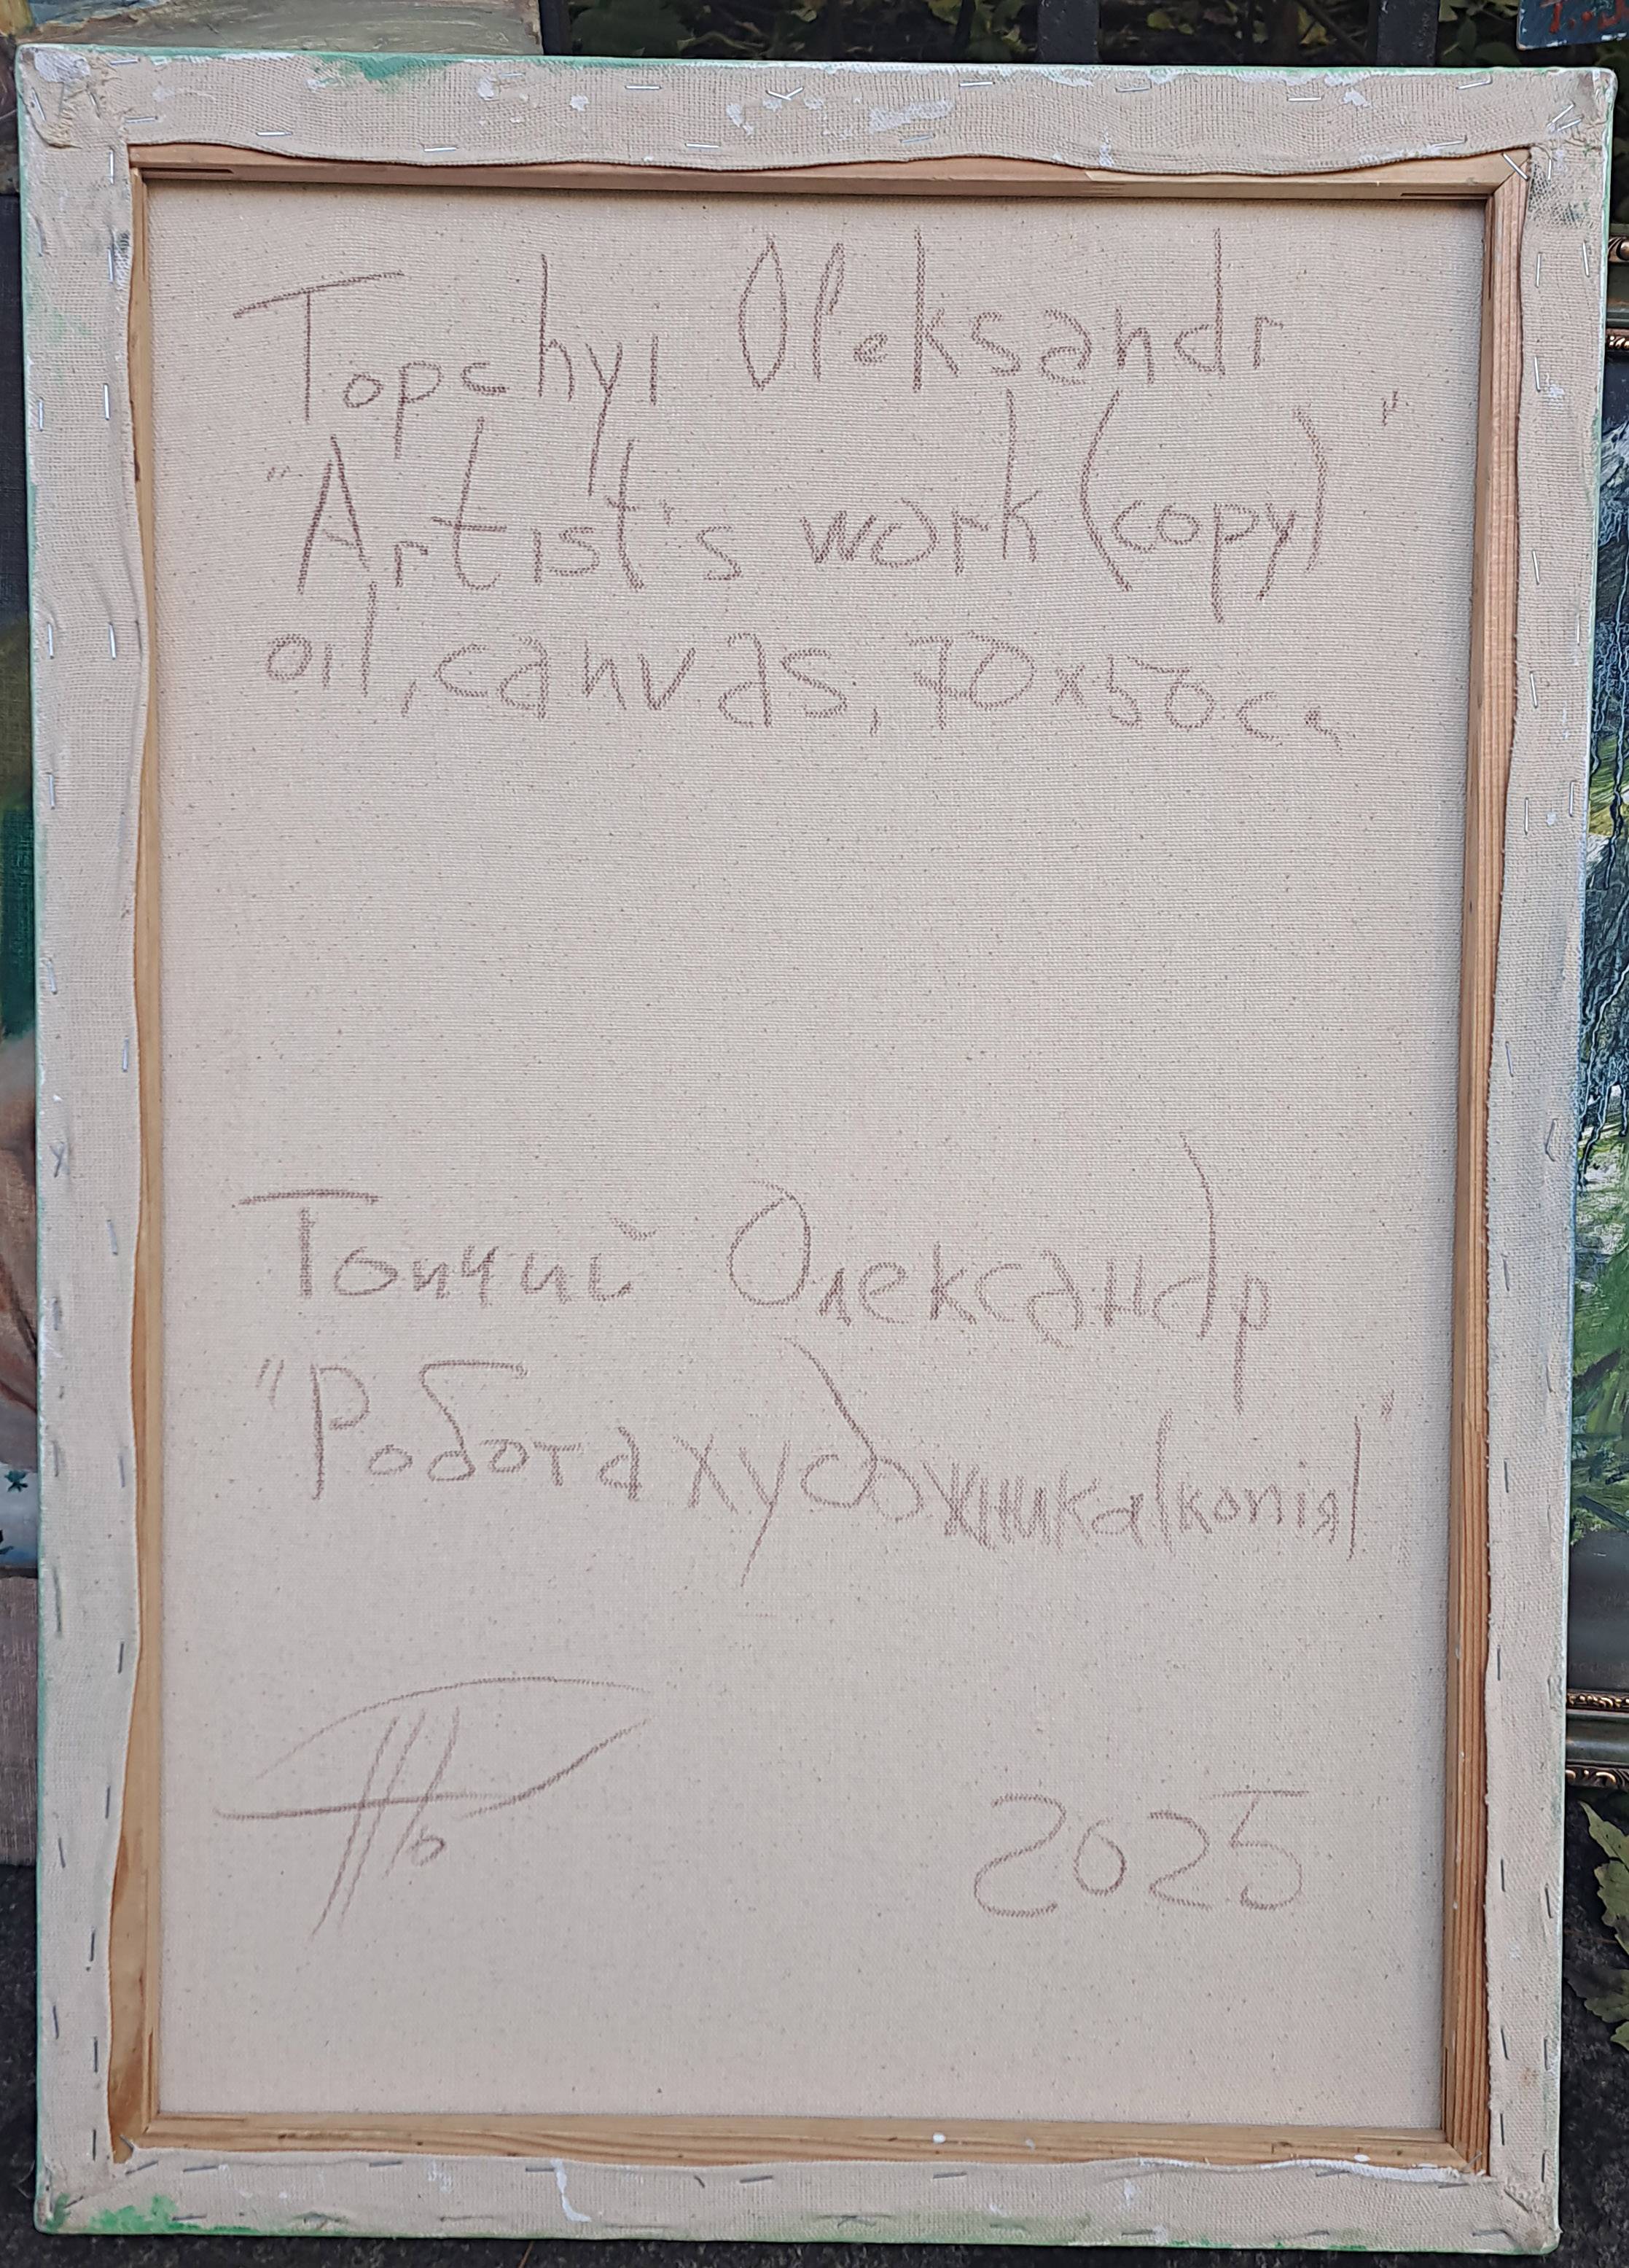 Topchyi Oleksandr
"Artist's work (copy)"
oil, canvas, 70x50
Топчий Олександр
"Робота художника (копія)"
2025